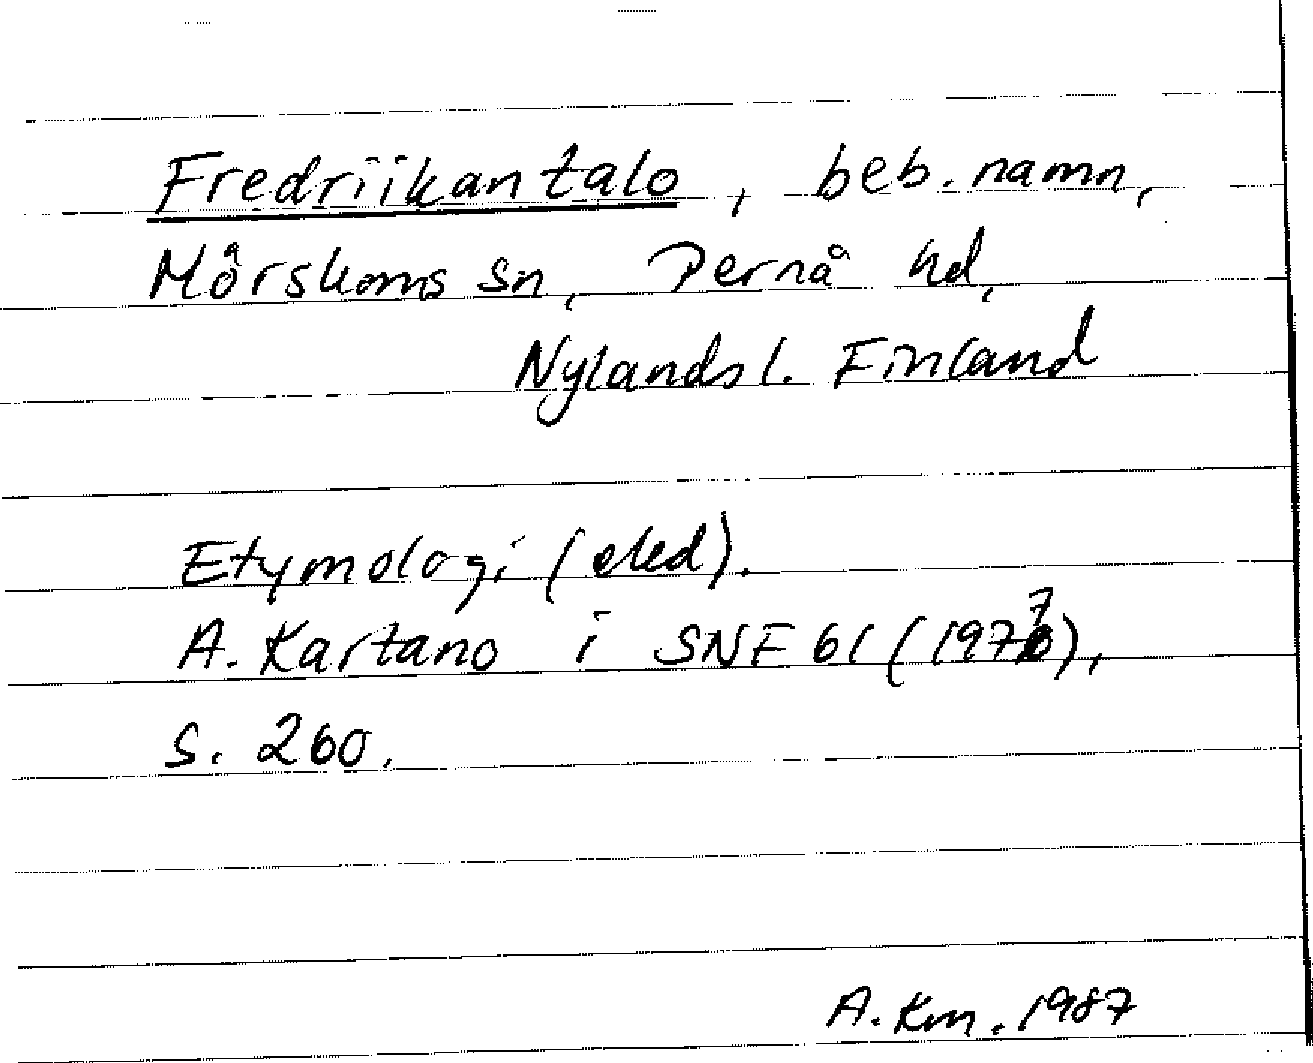 Fredriikantalo, beb. namn,
Mörskoms sn, Pernå hd,
Nylands l. Finland
Etymologi (eled).
A. Kartano i SNF 61 (1977),
s. 260.
A. Km. 1987